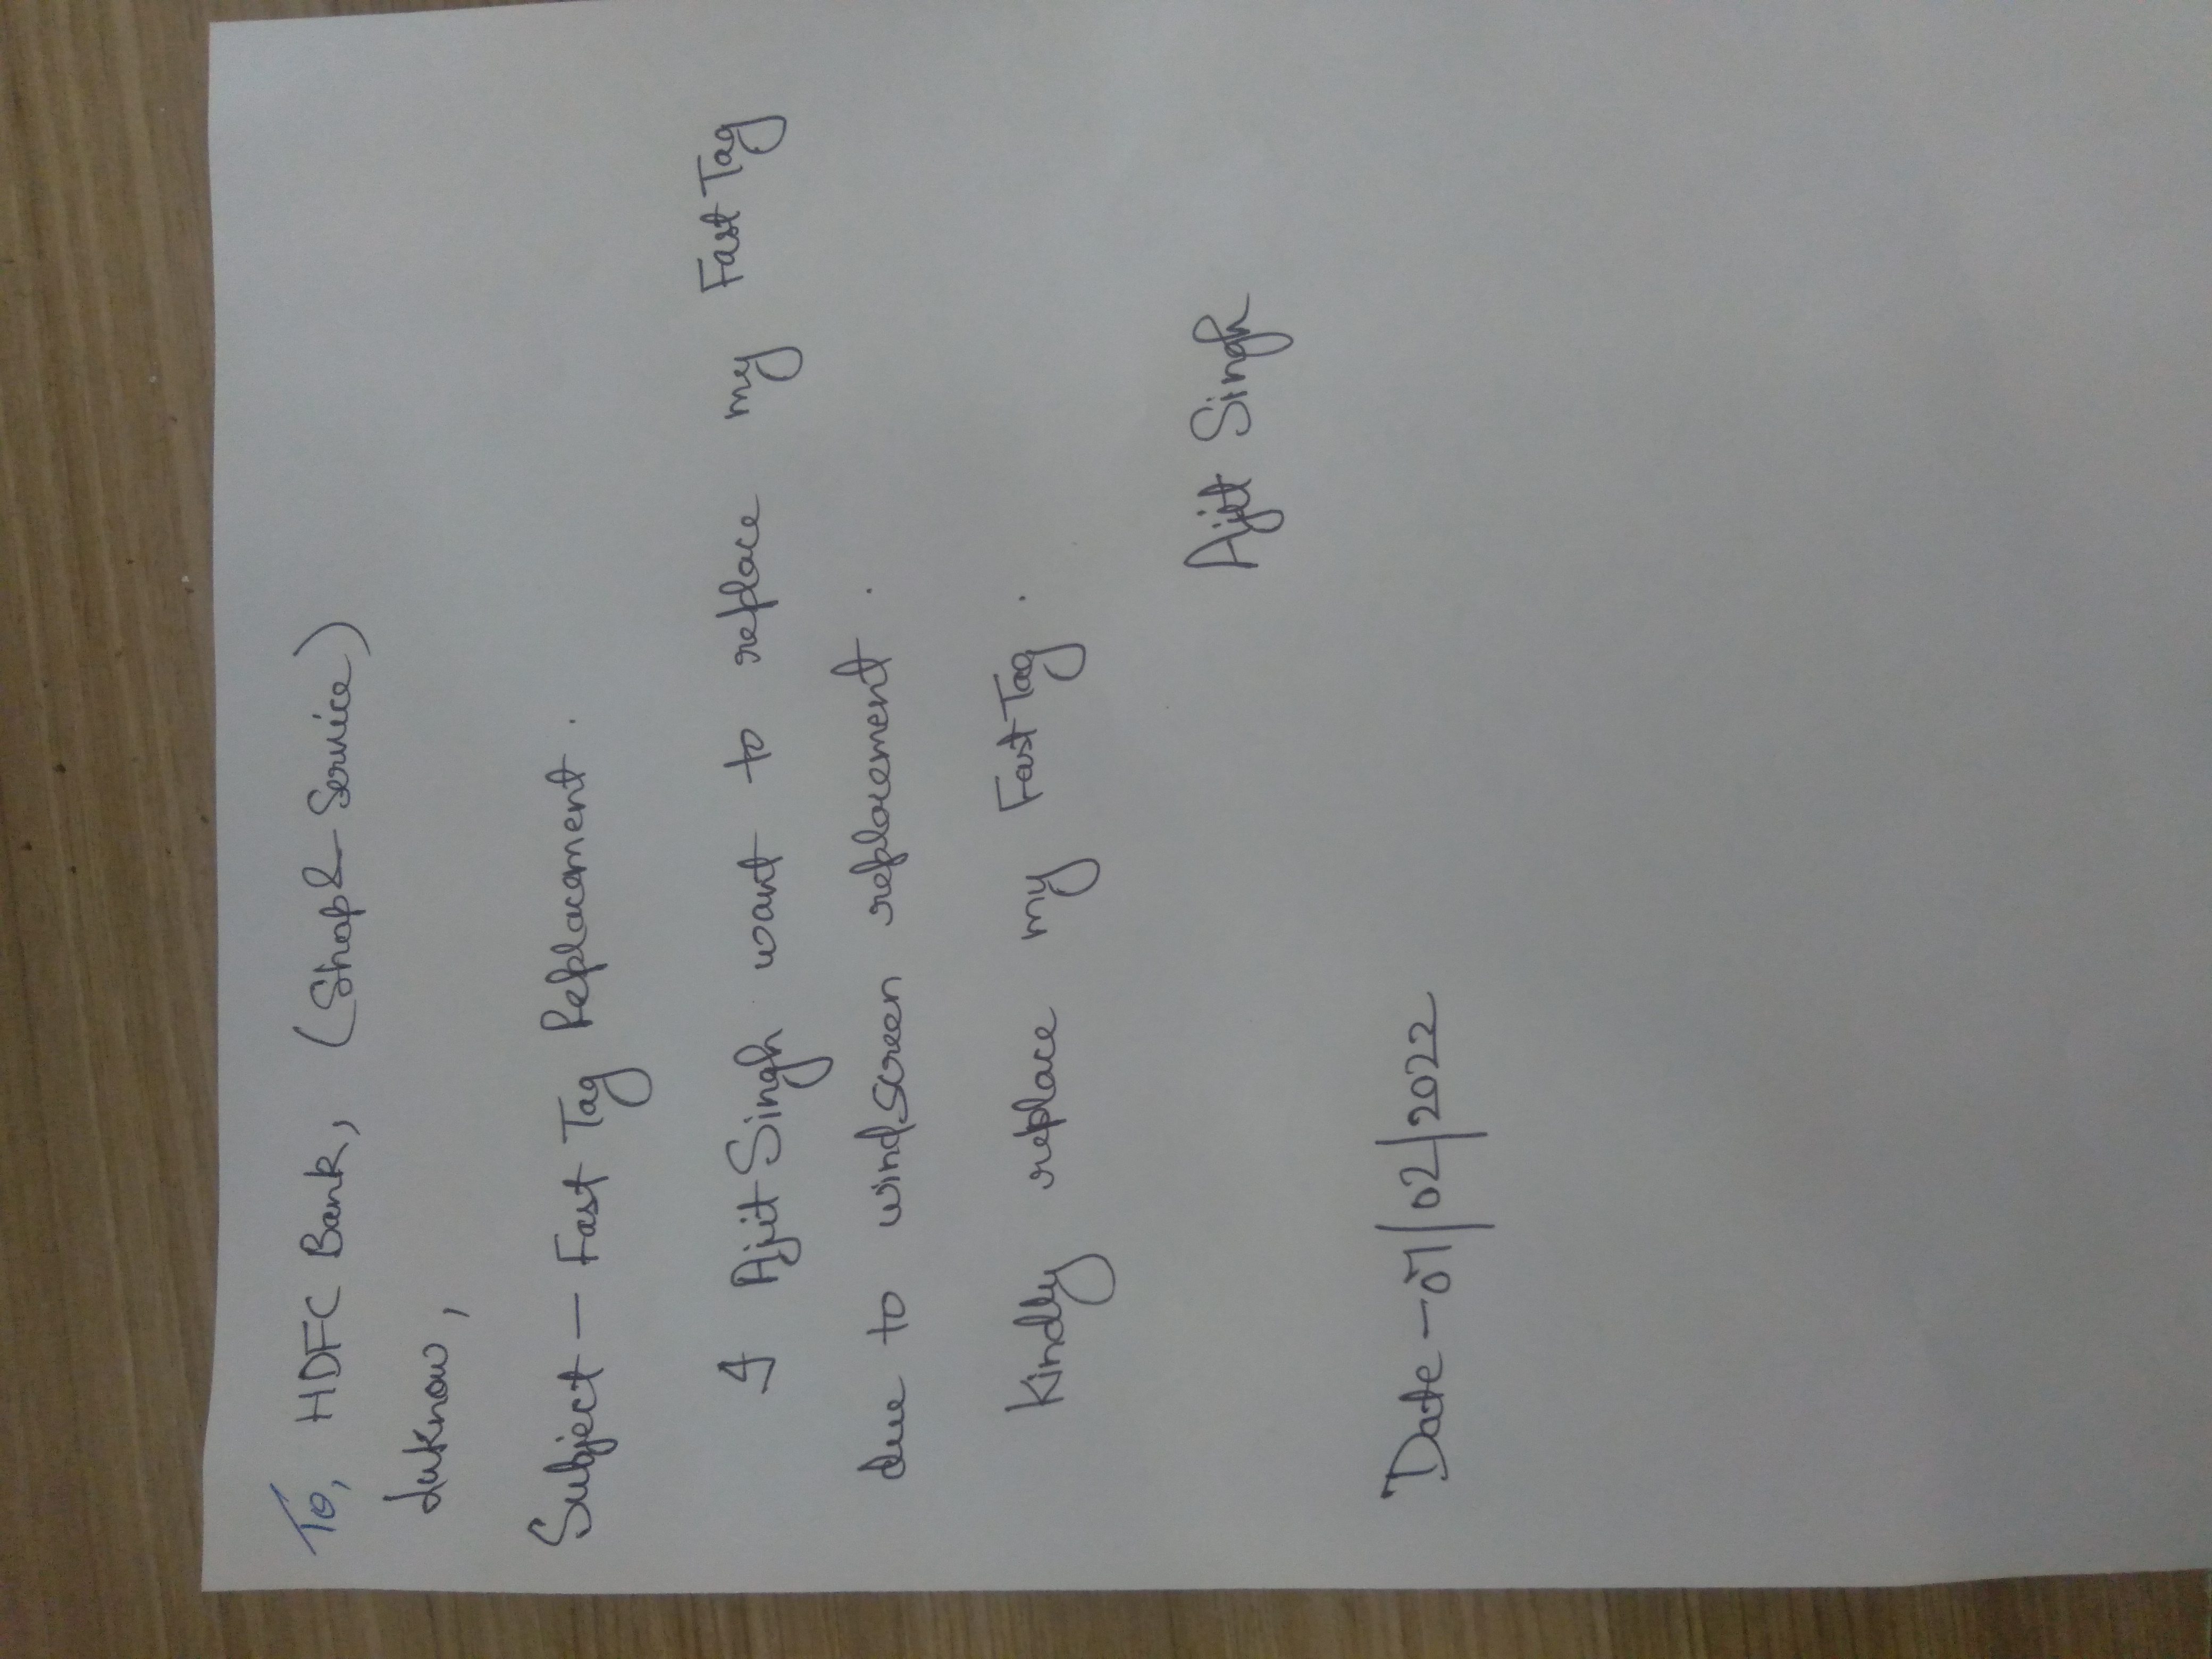 To, HDFC Bank, (Shop & Service)
Luknow,
Subject - Fast Tag Replacement.
I Ajit Singh want to replace my Fast Tag
due to windscreen replacement.
Kindly replace my Fast Tag.
Ajit Singh
Date - 01/02/2022